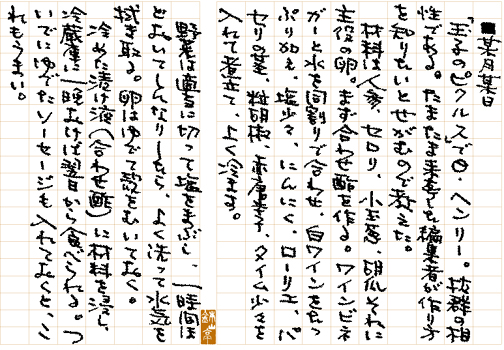 ■某月某日
「玉子のピクルスでO・ヘンリー。抜群の相
性である。たまたま来宅した編集者が作り方
を知りたいとせがむので教えた。
材料は人参、セロリ、小玉葱、胡瓜それに
主役の卵。まず合わせ酢を作る。ワインビネ
ガーと水を同割りで合わせ、白ワインをたっ
ぷり加え、塩少々、にんにく、ローリエ、パ
セリの茎、粒胡椒、赤唐辛子、タイム少々を
入れて煮立て、よく冷ます。
野菜は適当に切って塩をまぶし、一時間ほ
どおいてしんなりしたら、よく洗って水気を
拭き取る。卵はゆでて殻をむいておく。
冷めた漬け液(合わせ酢)に材料を浸し、
冷蔵庫に一晩おけば翌日から食べられる。つ
いでにゆでたソーセージも入れておくと、こ
れもうまい。